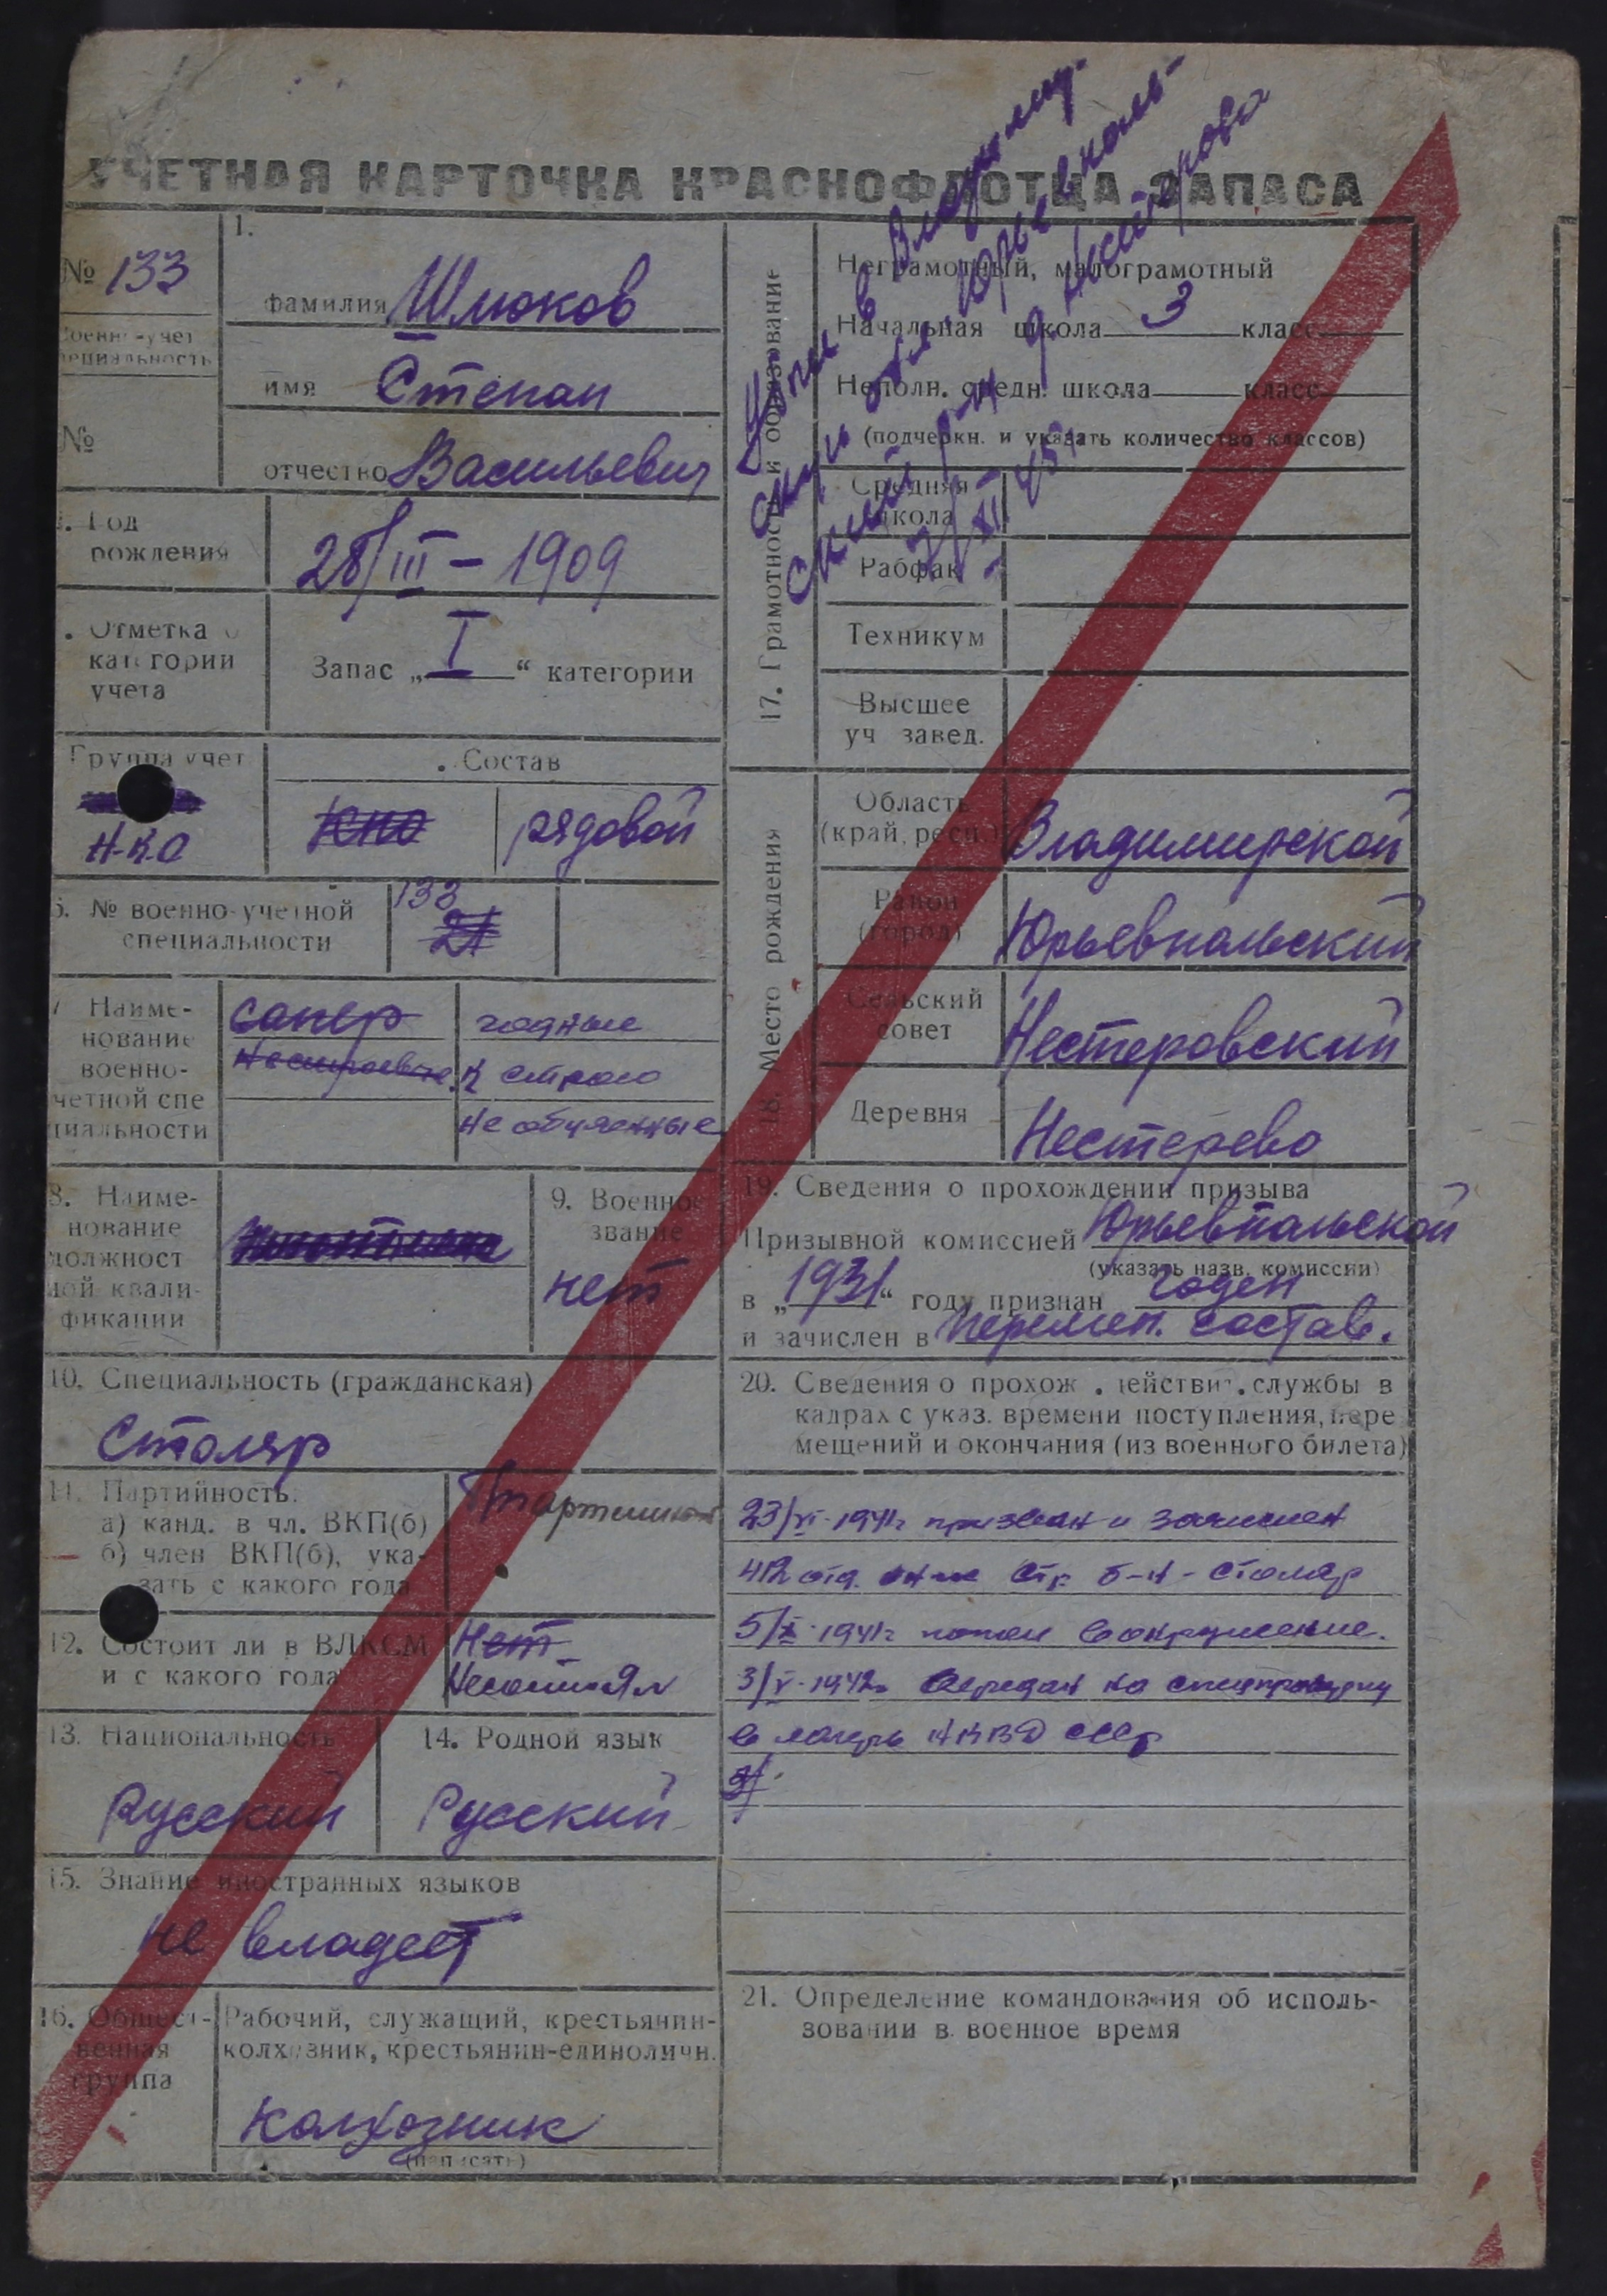 УЧЕТНАЯ КАРТОЧКА КРАСНОФЛОТЦА ЗАПАСА
№ 133
Военно-учет
специальность
№
1.
фамилия Шмоков
имя Степан
отчество Васильевич
Год
рождения
28/III – 1909
Отметка о
категории
учета
Запас „ I “ категории
Группа учет
Н.К.О
Состав
рядовой
№ военно-учетной
специальности
133
21
7 Наиме-
нование
военно-
учетной спе
циальности
сапер
годные
к строю
не обученные
8. Наиме-
нование
должност
ной квали-
фикации
9. Военное
звание
нет
10. Специальность (гражданская)
Столяр
11. Партийность:
а) канд. в чл. ВКП(б)
б) член ВКП(б), ука-
зать с какого года
12. Состоит ли в ВЛКСМ
и с какого года
Нет
13. Национальность
Русский
14. Родной язык
Русский
15. Знание иностранных языков
не владеет
16. Общест-
венная
группа
Рабочий, служащий, крестьянин-
колхозник, крестьянин-единоличн.
колхозник
(написать)
в Владимир-
Юрьевполь-
ский р-н д Нестерово
17. Грамотность и образование
Неграмотный, малограмотный
Начальная школа 3 класс
Неполн. средн. школа класс
(подчеркн. и указать количество классов)
Средняя
школа
Рабфак
Техникум
Высшее
уч завед.
18. Место рождения
Область
(край, респ.)
Владимирской
Район
(город)
Юрьевпольский
Сельский
совет
Нестеровский
Деревня
Нестерево
19. Сведения о прохождении призыва
Призывной комиссией Юрьевпольской
(указать назв. комиссии)
в „1931“ году признан годен
и зачислен в перемен. состав.
20. Сведения о прохож. действит. службы в
кадрах с указ. времени поступления, пере
мещений и окончания (из военного билета)
23/VI-1941г призван и зачислен
отд. стр. б-н - столяр
5/X-1941г попал в окружение.
3/V-1942г передан на спецпроверку
в лагерь НКВД СССР
21. Определение командования об исполь-
зовании в военное время